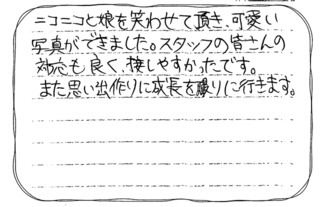 ニコニコと娘を笑わせて頂き、可愛い
写真ができました。スタッフの皆さんの
対応も良く、接しやすかったです。
また思い出作りに成長を撮りに行きます。